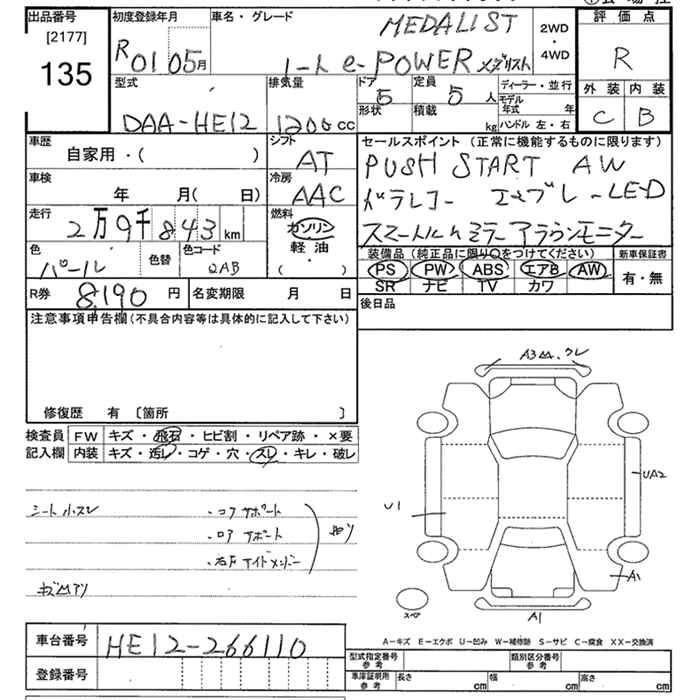 出品番号
[2177]
135
初度登録年月
R01 05月
車名・グレード
MEDALIST
ノート e-POWER メダリスト
2WD
・
4WD
評価点
R
外装 内装
C B
型式
DAA-HE12
排気量
1200cc
ドア
5
形状
定員
5人
積載
kg
ディーラー・並行
モデル年式 年
ハンドル 左・右
車歴
自家用・( )
シフト
AT
車検
年 月( 日)
冷房
AAC
走行
2万9千843km
燃料
ガソリン
軽油
( ・ )
色
パール
色替
色コード
QAB
R券
8,190円
名変期限 月 日
セールスポイント (正常に機能するものに限ります)
PUSH START AW
ドラレコー エマブレ LED
スマートルームミラー アラウンモニター
装備品 (純正品に限り○をつけてください)
新車保証書
PS PW ABS エアB AW
SR ナビ TV カワ
有・無
後日品
注意事項申告欄(不具合内容等は具体的に記入して下さい)
修復歴 有 〔箇所 〕
検査員
記入欄
FW キズ・飛石・ヒビ割・リペア跡・×要
内装 キズ・汚レ・コゲ・穴・スレ・キレ・破レ
シート小スレ
・コアサポート
・ロアサポート
・右Fサイドメンバー
A3
U1
UA2
A1
A1
スペア
A-キズ E-エクボ U-凹み W-補修跡 S-サビ C-腐食 XX-交換済
車台番号
HE12-266110
登録番号
型式指定番号
参考
類別区分番号
参考
車庫証明用
参考
長さ cm
幅 cm
高さ cm